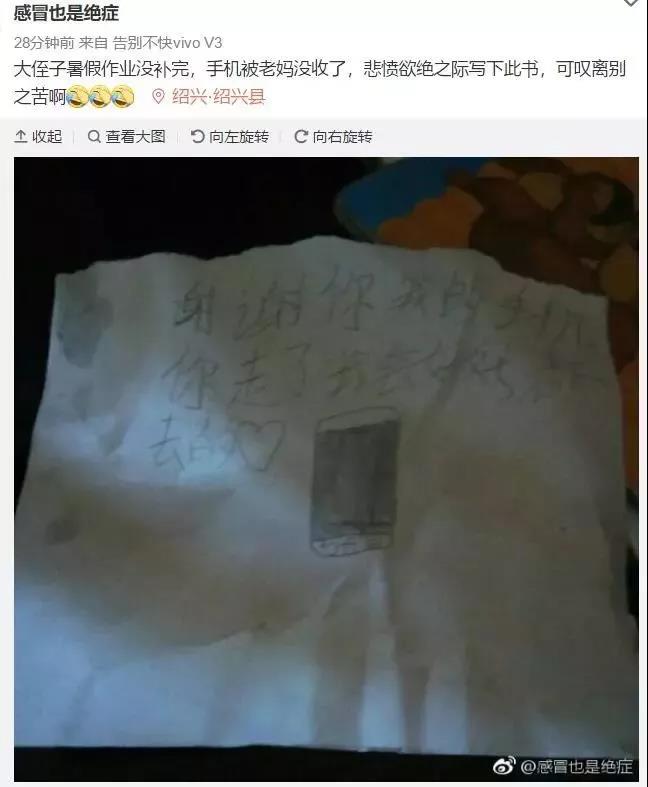 感冒也是绝症
28分钟前 来自 告别不快vivo V3
大侄子暑假作业没补完，手机被老妈没收了，悲愤欲绝之际写下此书，可叹离别
之苦啊 绍兴·绍兴县
收起 查看大图 向左旋转 向右旋转
谢谢你我的手机
你走了我会
去的
@感冒也是绝症